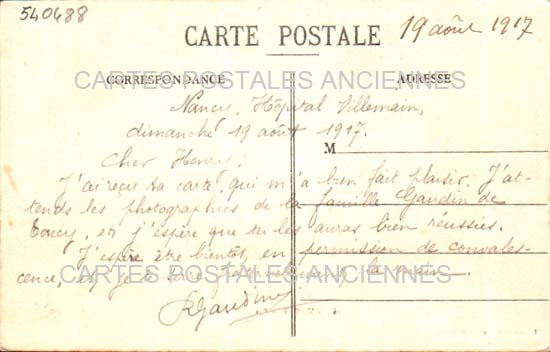 540488
CARTE POSTALE
19 août 1917
CORRESPONDANCE
ADRESSE
CARTES POSTALES ANCIENNES
Nancy, Hôpital Villemain,
dimanche 19 août 1917.
M
Cher Henry,
J'ai reçu ta carte, qui m'a bien fait plaisir. J'at-
tends les photographies de la famille Gaudin de
Torcy, et j'espère que tu les auras bien réussies.
J'espère être bientôt en permission de convales-
cence, et je te serre la main.
CARTES POSTALES ANCIENNES
RGaudin